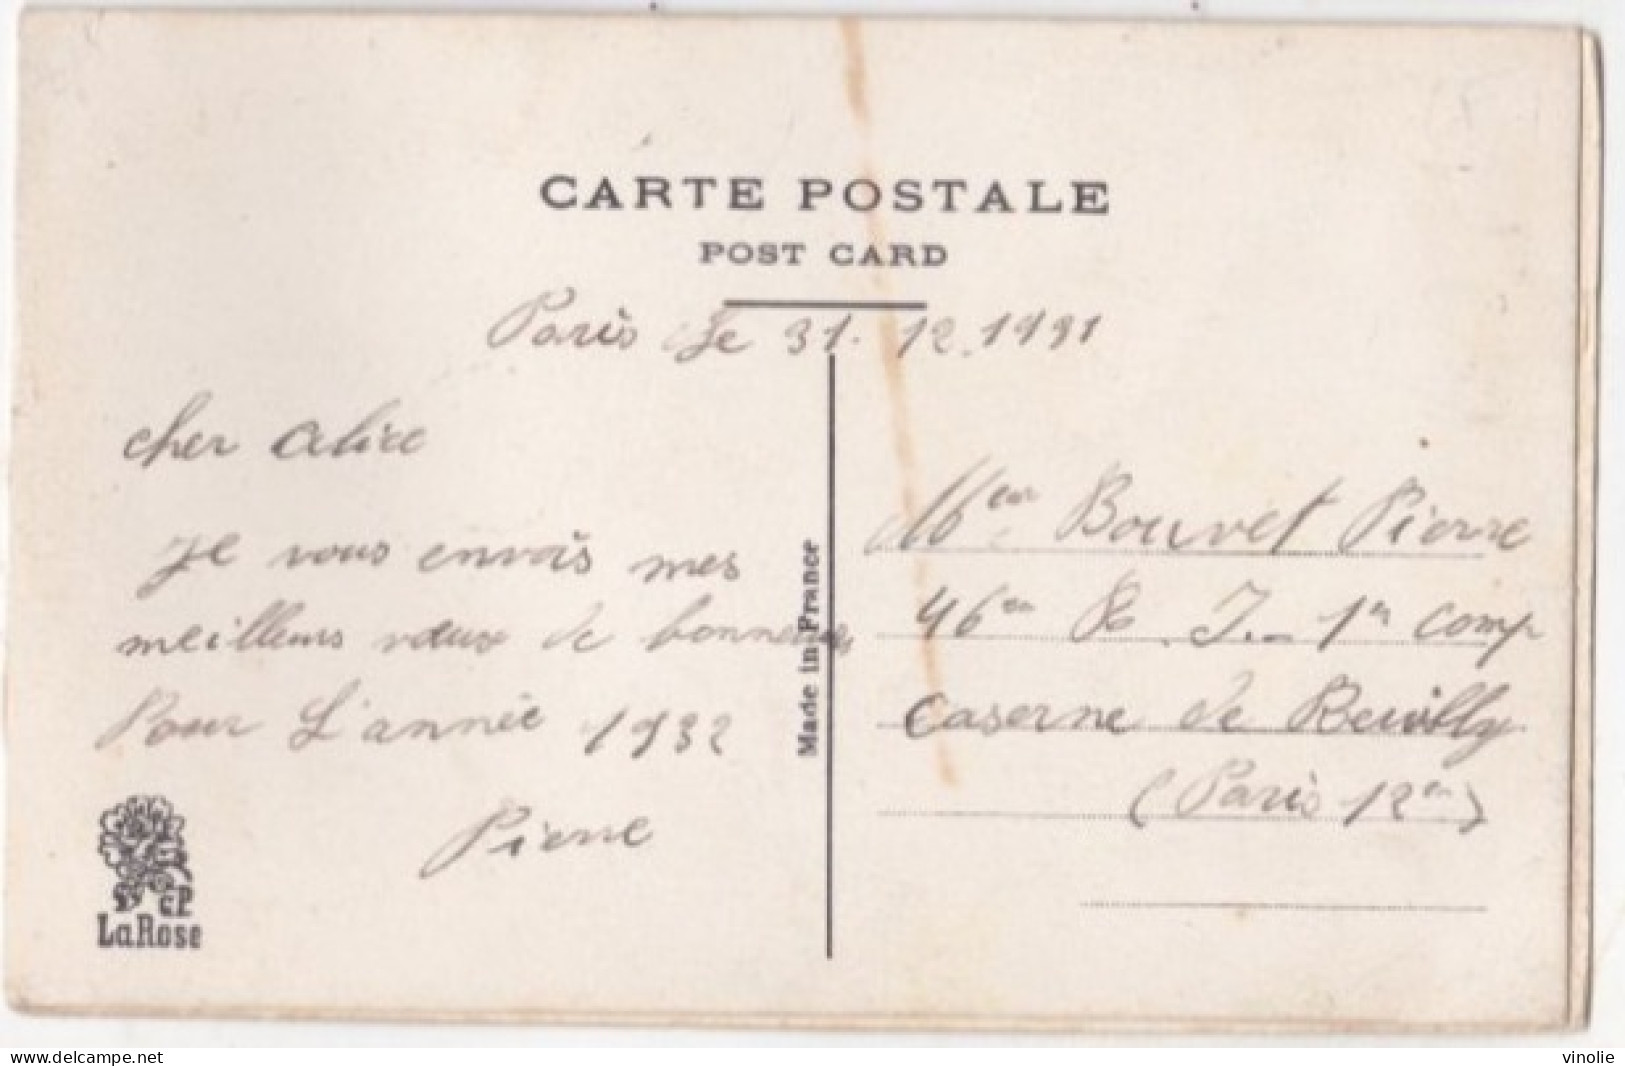 CARTE POSTALE
POST CARD
Paris le 31.12.1931
cher alice
Je vous envois mes
meilleurs vœux de bonne
Pour L'année 1932
Pierre
Made in France
CP
LaRose
Bouvet Pierre
46em R.I. 1er comp
caserne de Reuilly
(Paris 12em)
www.delcampe.net
vinolie